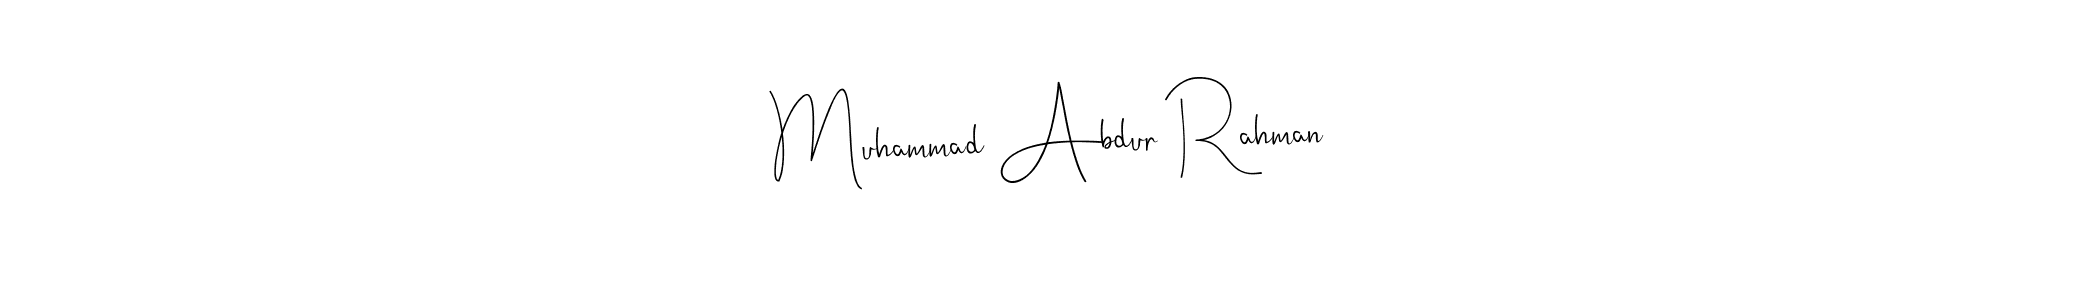 Muhammad Abdur Rahman